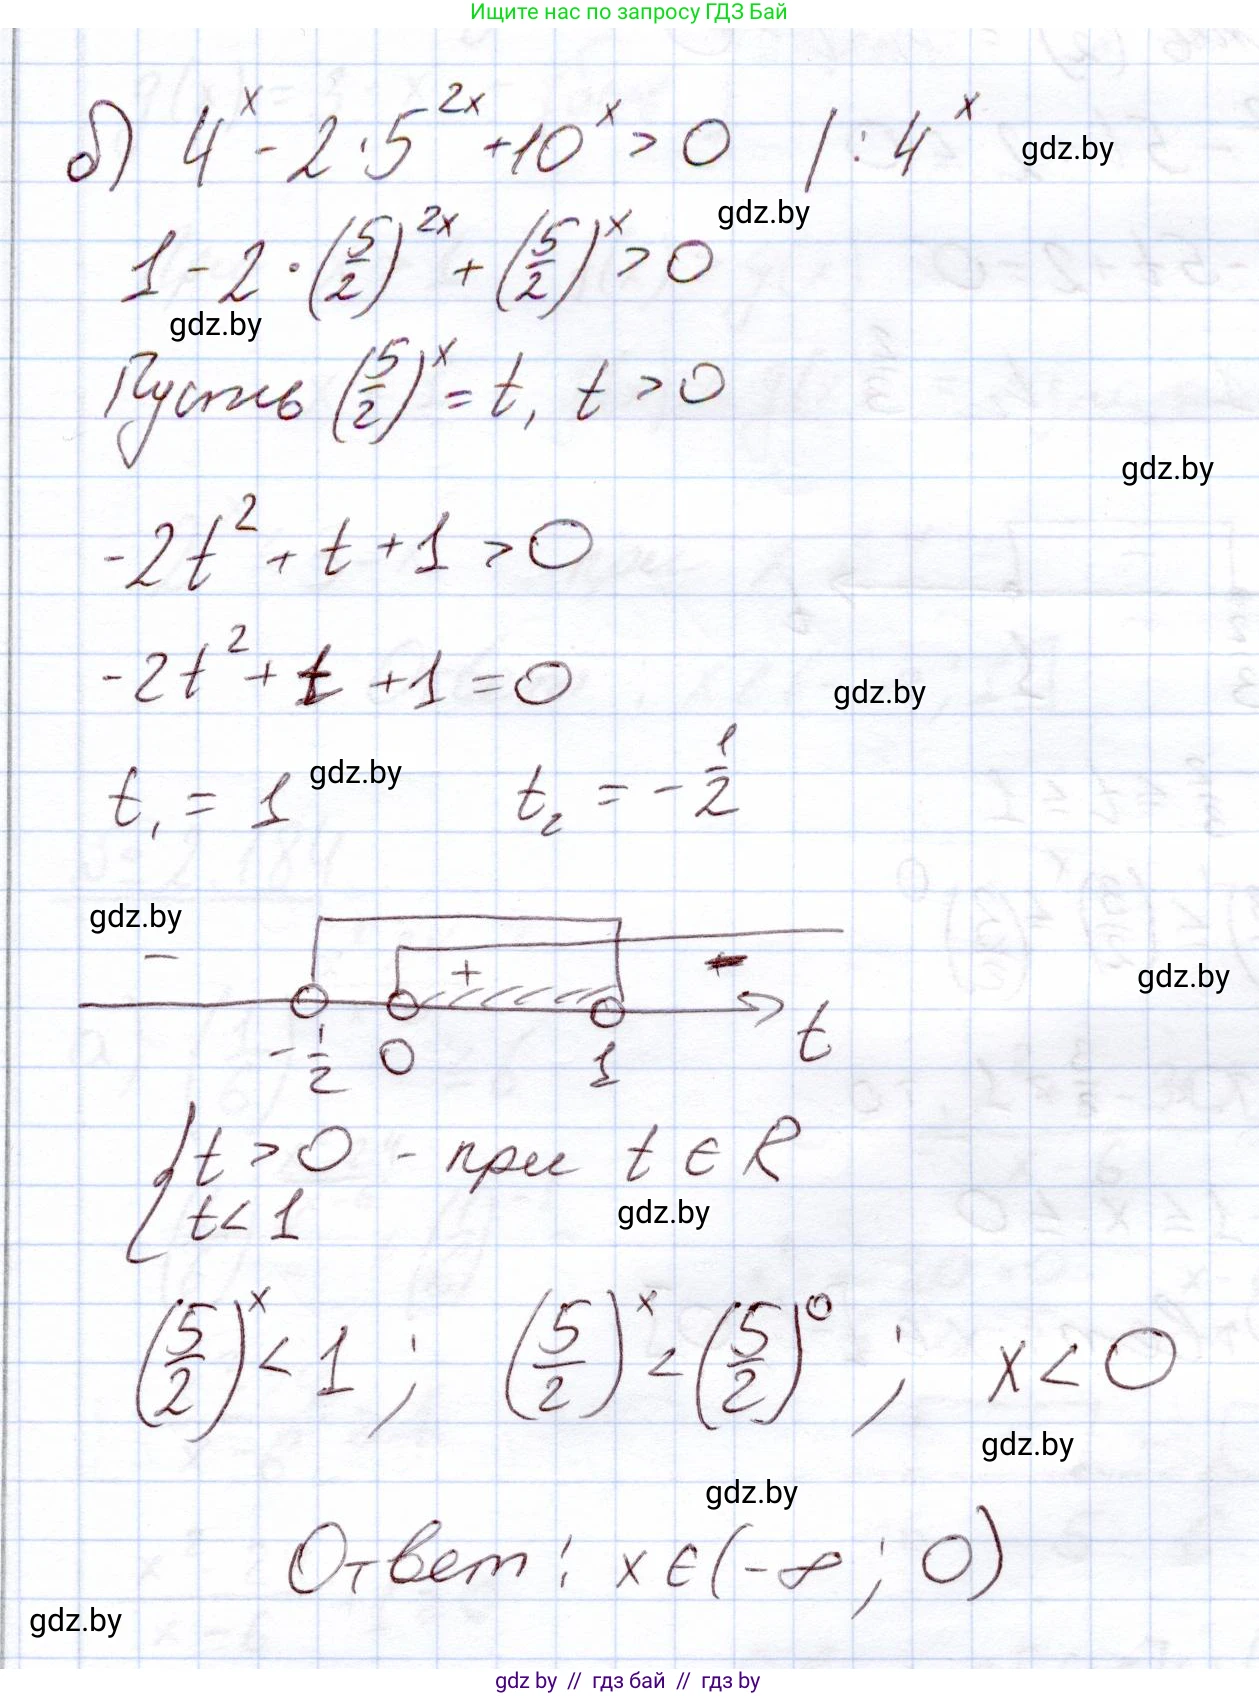 Ищите нас по запросу ГДЗ Бай
б) 4^x - 2·5^{2x} + 10^x > 0 | : 4^x gdz.by
gdz.by
1 - 2·(5/2)^{2x} + (5/2)^x > 0
gdz.by
Пусть (5/2)^x = t, t > 0
gdz.by
-2t^2 + t + 1 > 0
-2t^2 + t + 1 = 0
gdz.by
t_1 = 1 gdz.by t_2 = -1/2
gdz.by
- + -
gdz.by
-1/2 0 1 t
{ t > 0 - при t ∈ R
t < 1 gdz.by
(5/2)^x < 1 ; (5/2)^x < (5/2)^0 ; x < 0
gdz.by
gdz.by
Ответ: x ∈ (-∞; 0)
gdz.by
gdz by // гдз бай // гдз by